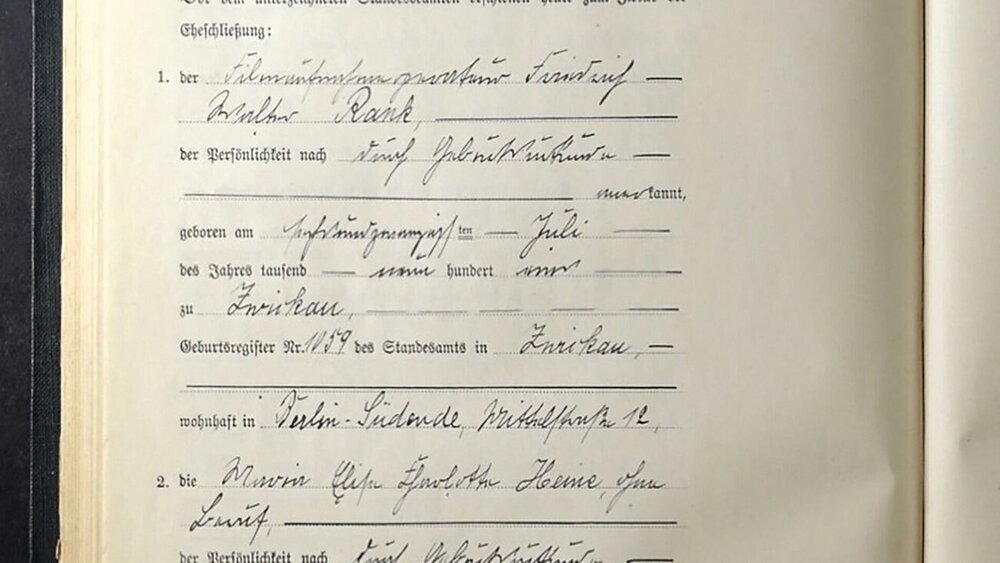 Vor dem unterzeichneten Standesbeamten erschienen heute zum Zwecke der
Eheschließung:
1. der Filmaufnahmeoperateur Friedrich
Walter Rank,
der Persönlichkeit nach durch Geburtsurkunde
anerkannt,
geboren am sechsundzwanzigsten Juli
des Jahres tausend neun hundert eins
zu Zwickau,
Geburtsregister Nr. 1059 des Standesamts in Zwickau,
wohnhaft in Berlin-Südende, Mittelstraße 12,
2. die Maria Elise Charlotte Heine, ohne
Beruf,
der Persönlichkeit nach durch Geburtsurkunde